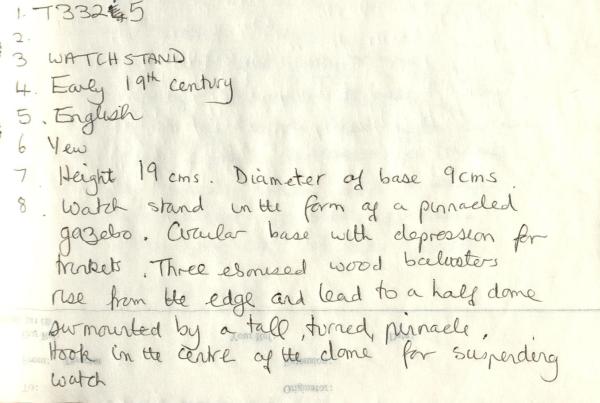 1. T332 5
2.
3 WATCHSTAND
4. Early 19th century
5. English
6 Yew
7 Height 19 cms. Diameter of base 9cms.
8. Watch stand in the form of a pinnacled
gazebo. Circular base with depression for
trinkets. Three ebonised wood balusters
rise from the edge and lead to a half dome
surmounted by a tall, turned, pinnacle.
Hook in the centre of the dome for suspending
watch